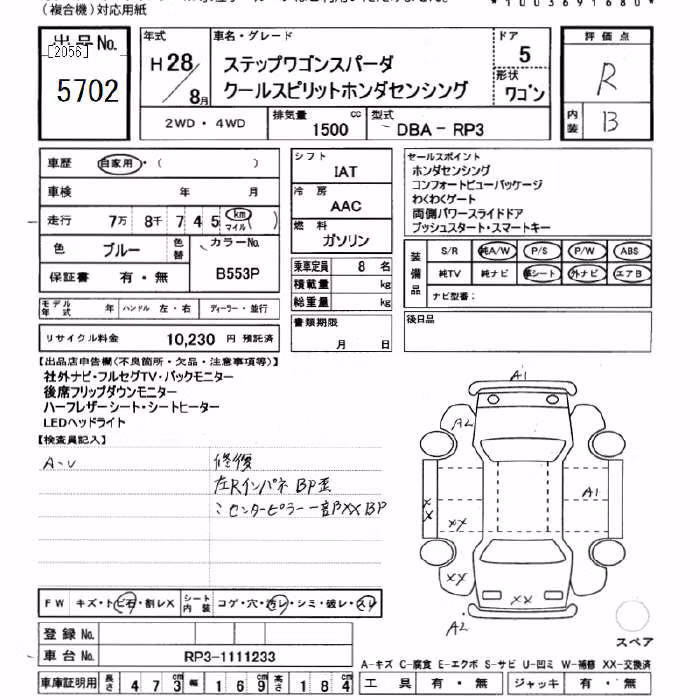 (複合機)対応用紙
*1003691680*
出品No.
[2056]
5702
年式
H28/8月
車名・グレード
ステップワゴンスパーダ
クールスピリットホンダセンシング
ドア
5
形状
ワゴン
評価点
R
内装
B
2WD・4WD
排気量
1500
cc
型式
DBA－RP3
車歴
自家用・(　　)
車検　年　月
走行　7万　8千　7　4　5　km
マイル
(　)
色　ブルー
色替
カラーNo.
B553P
保証書　有・無
モデル年式　年
ハンドル　左・右
ディーラー・並行
リサイクル料金　10,230　円　預託済
シフト
IAT
冷房
AAC
燃料
ガソリン
乗車定員　8　名
積載量　kg
総重量　kg
書類期限
月　日
セールスポイント
ホンダセンシング
コンフォートビューパッケージ
わくわくゲート
両側パワースライドドア
プッシュスタート・スマートキー
装備品
S/R　純A/W　P/S　P/W　ABS
純TV　純ナビ　革シート　外ナビ　エアB
ナビ型番：
後日品
【出品店申告欄(不良箇所・欠品・注意事項等)】
社外ナビ・フルセグTV・バックモニター
後席フリップダウンモニター
ハーフレザーシート・シートヒーター
LEDヘッドライト
【検査員記入】
A-U
修復
左RインパネBP歪
ミセンターピラー一部BXXBP
A1
A2
A1
XX
XX
XX
XX
A2
スペア
FW　キズ・トビ石・割レX
シート内装　コゲ・穴・汚レ・シミ・破レ・スレ
登録No.
車台No.　RP3-1111233
A-キズ　C-腐食　E-エクボ　S-サビ　U-凹ミ　W-補修　XX-交換済
車庫証明用　長さ　4　7　3　cm　幅　1　6　9　cm　高さ　1　8　4　cm
工具　有・無　ジャッキ　有・無